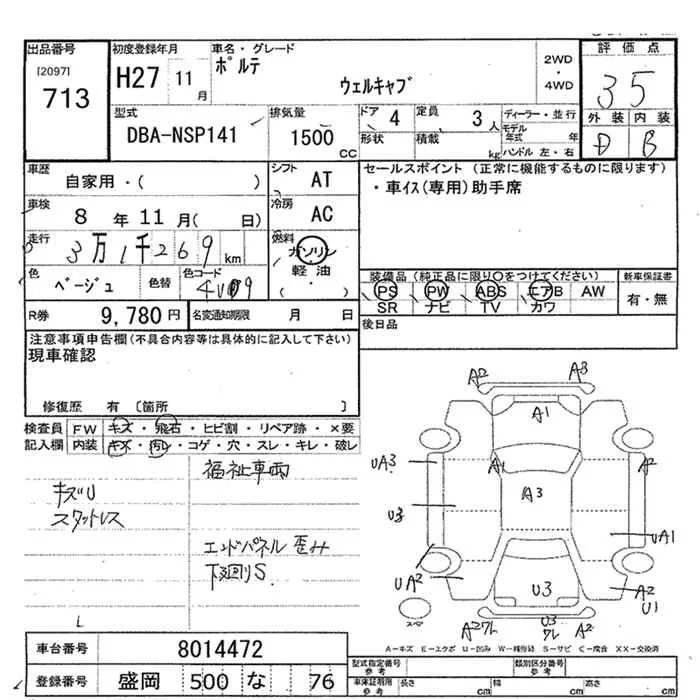 出品番号 初度登録年月 車名・グレード 評価点
[2097] 713 H27 11月 ポルテ ウェルキャブ 2WD・4WD 35
外装 内装
D B
型式 排気量 ドア 4 定員 3人 ディーラー・並行
DBA-NSP141 1500CC 形状 積載 kg モデル年式 年
ハンドル 左・右
車歴 シフト セールスポイント (正常に機能するものに限ります)
自家用・( ) AT ・車イス(専用)助手席
車検 冷房
8年11月( 日) AC
走行 燃料
3万1千269km ガソリン
軽・油
( )
色 色替 色コード
ベージュ
装備品 (純正品に限り○をつけてください) 新車保証書
PS PW ABS エアB AW 有・無
SR ナビ TV カワ
R券 9,780円 名変通知期限 月 日 後日品
注意事項申告欄(不具合内容等は具体的に記入して下さい)
現車確認
修復歴 有 〔箇所 〕
検査員 FW キズ・飛石・ヒビ割・リペア跡・×要
記入欄 内装 キズ・汚レ・コゲ・穴・スレ・キレ・破レ
福祉車両
キズU
スタットレス
エンドパネル歪み
下廻りS
L
A2 A3
A1
UA3 A1 A2
A3
U3
UA1
UA2 U3 A2
U1
スペア
A2ワレ U3ワレ A2
A-キズ E-エクボ U-凹み W-補修跡 S-サビ C-腐食 XX-交換済
車台番号 8014472
登録番号 盛岡 500 な 76
型式指定番号 参考 類別区分番号 参考
車庫証明用 参考 長さ cm 幅 cm 高さ cm